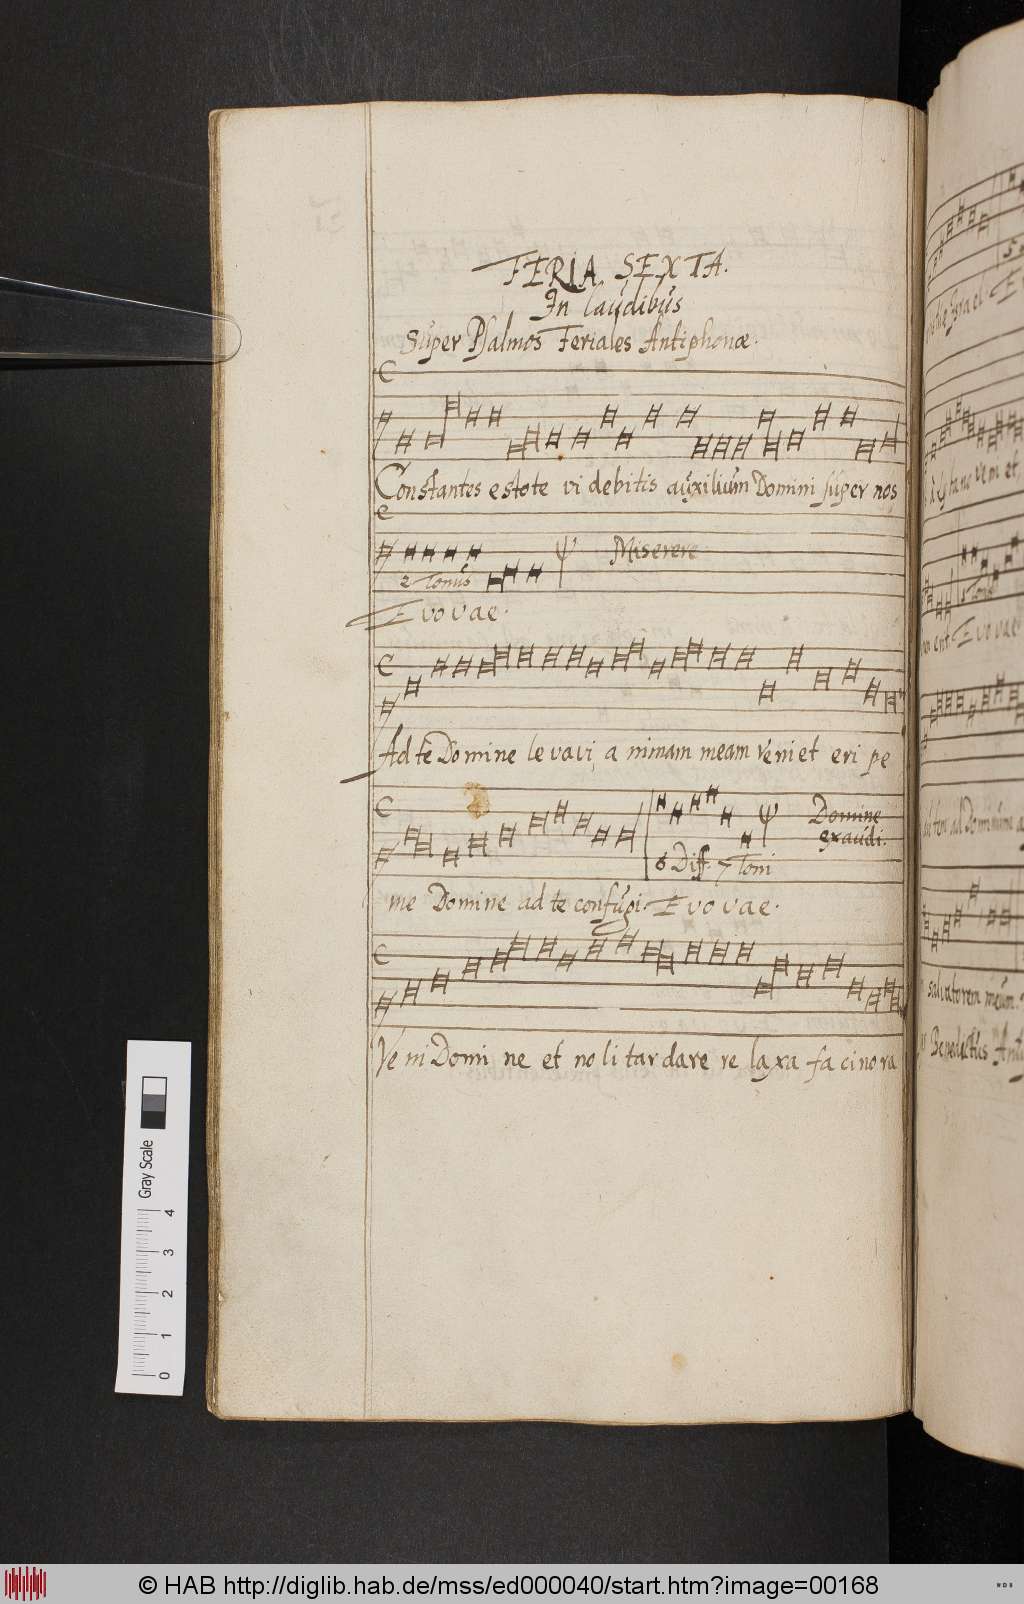 FERIA SEXTA.
In laudibus
Super Psalmos Feriales Antiphonæ.
Constantes estote vi debitis auxilium Domini super nos
Miserere
2 Tonus
Evovae.
Ad te Domine levavi, a nimam meam veni et eri pe
Domine
exaudi.
6 Diff. 7 Toni
me Domine ad te confugi. Evovae.
Ve ni Domi ne et no li tar dare re laxa fa cino ra
salvatorem meum.
Benedictus
Evovae
Gray Scale
0 1 2 3 4
© HAB http://diglib.hab.de/mss/ed000040/start.htm?image=00168